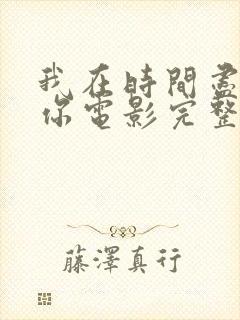 我在時間盡
你電影完整
藤澤真行